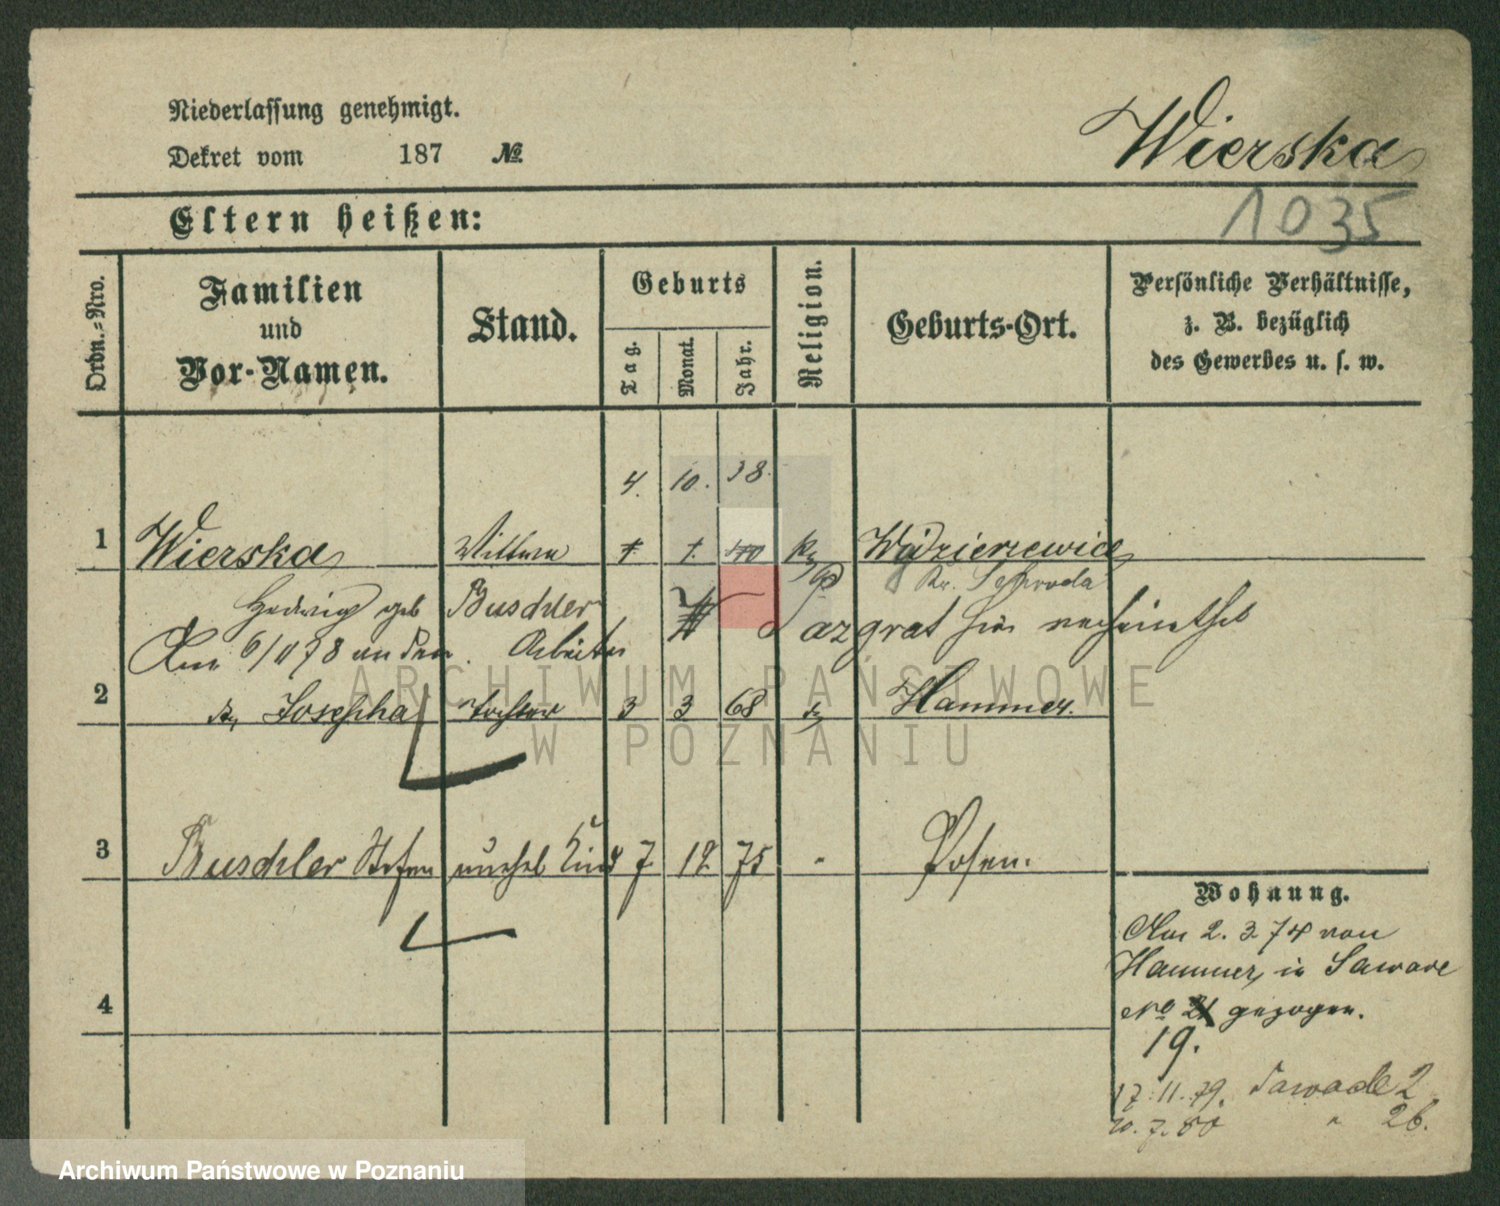 Niederlassung genehmigt.
Dekret vom 187 №
Wierska
1035
Eltern heißen:
Ordn.=Nro.
Familien
und
Vor-Namen.
Stand.
Geburts
Tag.
Monat.
Jahr.
Religion.
Geburts-Ort.
Persönliche Verhältnisse,
z. B. bezüglich
des Gewerbes u. s. w.
4. 10. 38.
1 Wierska Wittwe
Hedwig geb Buschler
Am 6/11 78 an den Arbeiter
2 Josepha Tochter 3 3 68 Hammer.
3 Buschler Stefan unehel Kind 7 12 75 " Posen.
4
Wohnung.
Am 2. 3. 74 von
Hammer, in Sawade
No 21 gezogen.
19.
17. 11. 79. Sawade 2
20. 7. 80 " 26.
ARCHIWUM PAŃSTWOWE
W POZNANIU
Archiwum Państwowe w Poznaniu